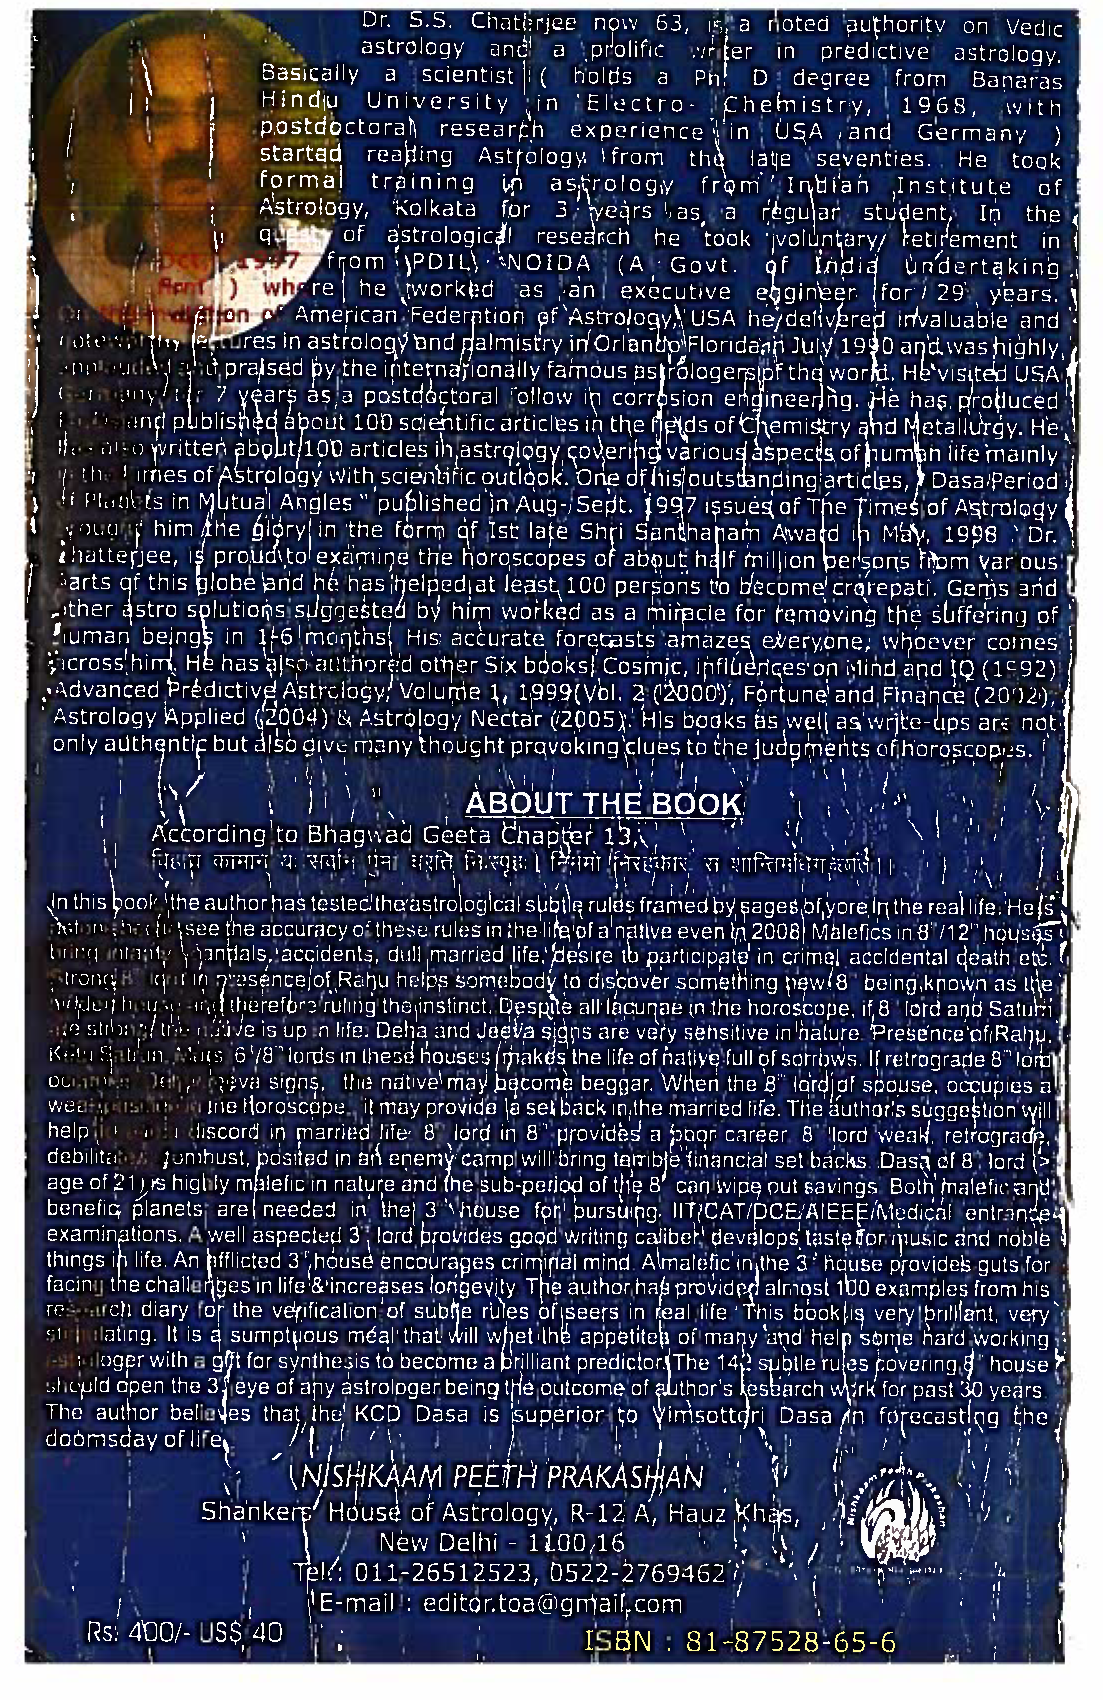 Dr. S.S. Chaterjee now 63, is a noted authority on Vedic
astrology and a prolific writer in predictive astrology.
Basically a scientist ( holds a Ph D degree from Banaras
Hindu University in Electro- Chemistry, 1968, with
postdoctoral research experience in USA and Germany )
started reading Astrology from the late seventies. He took
formal training in astrology from Indian Institute of
Astrology, Kolkata for 3 years as a regular student. In the
quest of astrological research he took voluntary retirement in
1997 from PDIL NOIDA (A Govt. of India undertaking
) where he worked as an executive engineer for 29 years.
of American Federation of Astrology, USA he delivered invaluable and
lectures in astrology and palmistry in Orlando Florida in July 1990 and was highly
and praised by the internationally famous astrologers of the world. He visited USA
7 years as a postdoctoral follow in corrosion engineering. He has produced
and published about 100 scientific articles in the fields of Chemistry and Metallurgy. He
has also written about 100 articles in astrology covering various aspects of human life mainly
in the Times of Astrology with scientific outlook. One of his outstanding articles, " Dasa Period
of Planets in Mutual Angles " published in Aug-Sept. 1997 issues of The Times of Astrology
him the glory in the form of 1st late Shri Santhanam Award in May, 1998 . Dr.
Chatterjee, is proud to examine the horoscopes of about half million persons from various
parts of this globe and he has helped at least 100 persons to become crorepati. Gems and
other astro solutions suggested by him worked as a miracle for removing the suffering of
human beings in 1-6 months. His accurate forecasts amazes everyone, whoever comes
across him. He has also authored other Six books, Cosmic, influences on Mind and IQ (1992)
Advanced Predictive Astrology, Volume 1, 1999(Vol. 2 (2000), Fortune and Finance (2002),
Astrology Applied (2004) & Astrology Nectar (2005). His books as well as write-ups are not
only authentic but also give many thought provoking clues to the judgments of horoscopes.
ABOUT THE BOOK
According to Bhagwad Geeta Chapter 13,
विहाय कामान यः सर्वान
In this book, the author has tested the astrological subtle rules framed by sages of yore in the real life. He is
see the accuracy of these rules in the life of a native even in 2008. Malefics in 8"/12" houses
bring scandals, accidents, dull married life, desire to participate in crime, accidental death etc.
Strong 8" lord in presence of Rahu helps somebody to discover something new. 8" being known as the
hidden house and therefore ruling the instinct. Despite all lacunae in the horoscope, if 8" lord and Saturn
are strong, the native is up in life. Deha and Jeeva signs are very sensitive in nature. Presence of Rahu,
Ketu Saturn, Mars, 6"/8" lords in these houses makes the life of native full of sorrows. If retrograde 8" lord
Jeeva signs, the native may become beggar. When the 8" lord of spouse, occupies a
weak in the Horoscope, it may provide a set back in the married life. The author's suggestion will
help discord in married life. 8" lord in 8" provides a poor career. 8" lord weak, retrograde,
debilitated, combust, posited in an enemy camp will bring terrible financial set backs. Dasa of 8" lord (>
age of 21) is highly malefic in nature and the sub-period of the 8" can wipe out savings. Both malefic and
benefic planets are needed in the 3" house for pursuing IIT/CAT/DCE/AIEEE/Medical entrance
examinations. A well aspected 3" lord provides good writing caliber, develops taste for music and noble
things in life. An afflicted 3" house encourages criminal mind. A malefic in the 3" house provides guts for
facing the challenges in life & increases longevity. The author has provided almost 100 examples from his
research diary for the verification of subtle rules of seers in real life. This book is very brilliant, very
stimulating. It is a sumptuous meal that will whet the appetites of many and help some hard working
astrologer with a gift for synthesis to become a brilliant predictor. The 142 subtle rules covering 8" house
should open the 3" eye of any astrologer being the outcome of author's research work for past 30 years.
The author believes that the KCD Dasa is superior to Vimsottari Dasa in forecasting the
doomsday of life.
NISHKAAM PEETH PRAKASHAN
Shankers' House of Astrology, R-12 A, Hauz Khas,
New Delhi - 110016
Tel.: 011-26512523, 0522-2769462
E-mail : editor.toa@gmail.com
Nishkaam Peeth Prakashan
Rs. 400/- US$ 40
ISBN : 81-87528-65-6